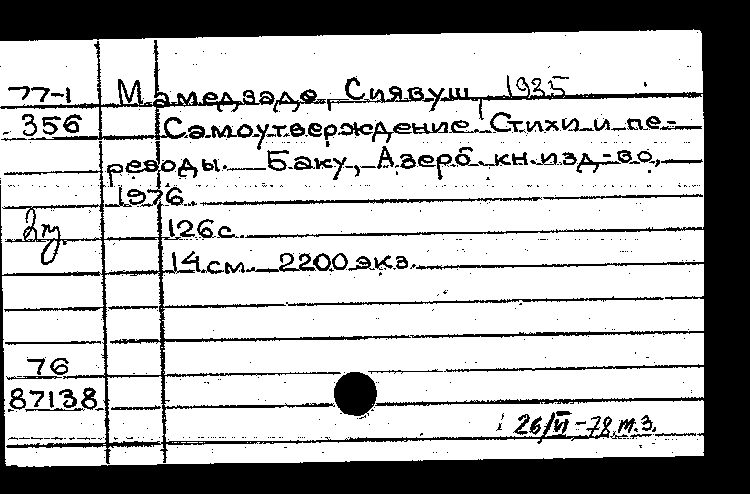 77-1 Мамедзаде, Сиявуш, 1935
356 Самоутверждение. Стихи и пе-
реводы. Баку, Азерб. кн. изд-во,
1976
126 с.
14 см. 2200 экз.
76
87138
26/VI-78 т.з.